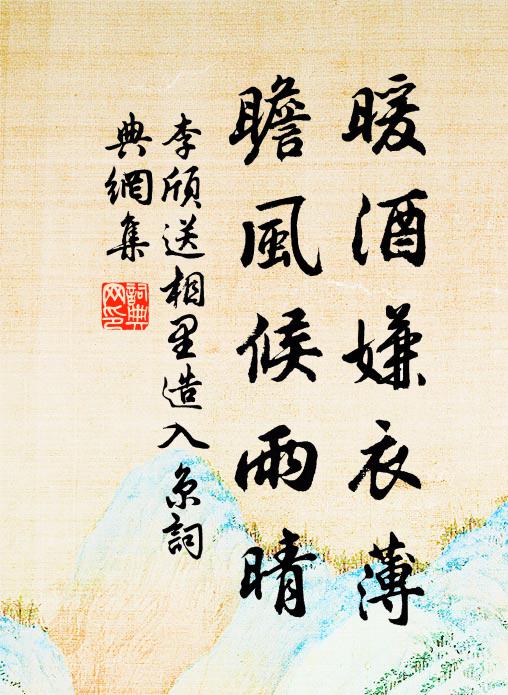 暖酒嫌衣薄
瞻風候雨晴
李頎送相里造入京詞
典網集
詞典
网印